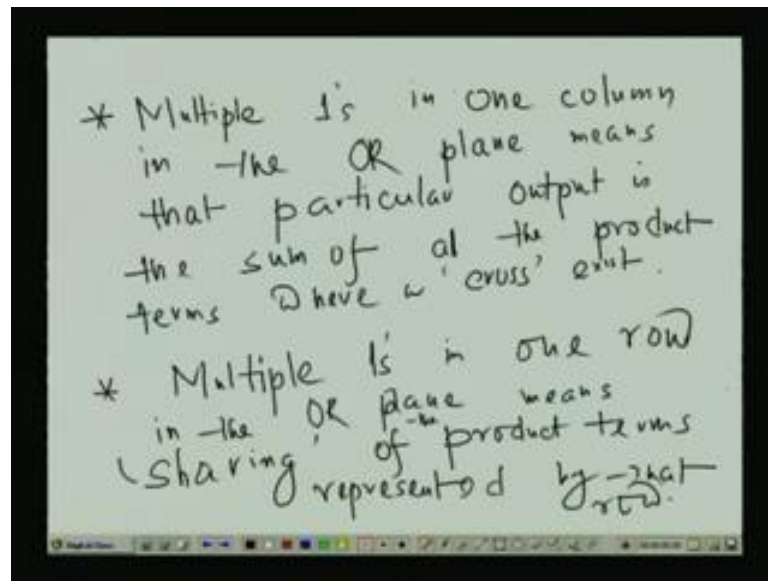 * Multiple 1's in one column
in the OR plane means
that particular output is
the sum of al the product
terms where a 'cross' exist.
* Multiple 1s in one row
in the OR plane means
'sharing' of the product terms
represented by that
row.